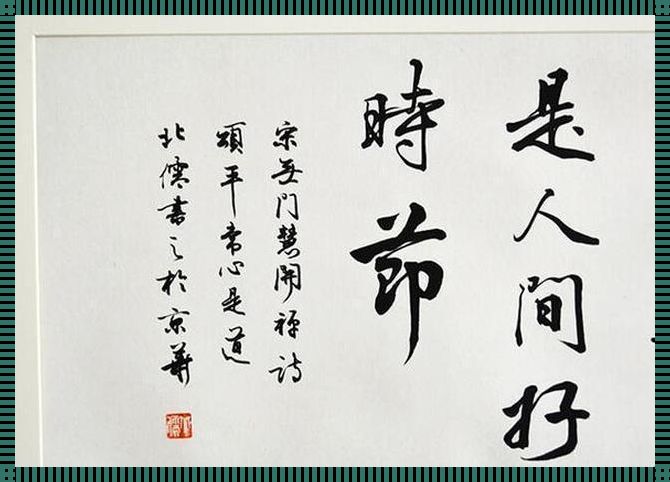 是人間好
時節
宗無門慧開禪詩
頌平常心是道
北儒書之於京華